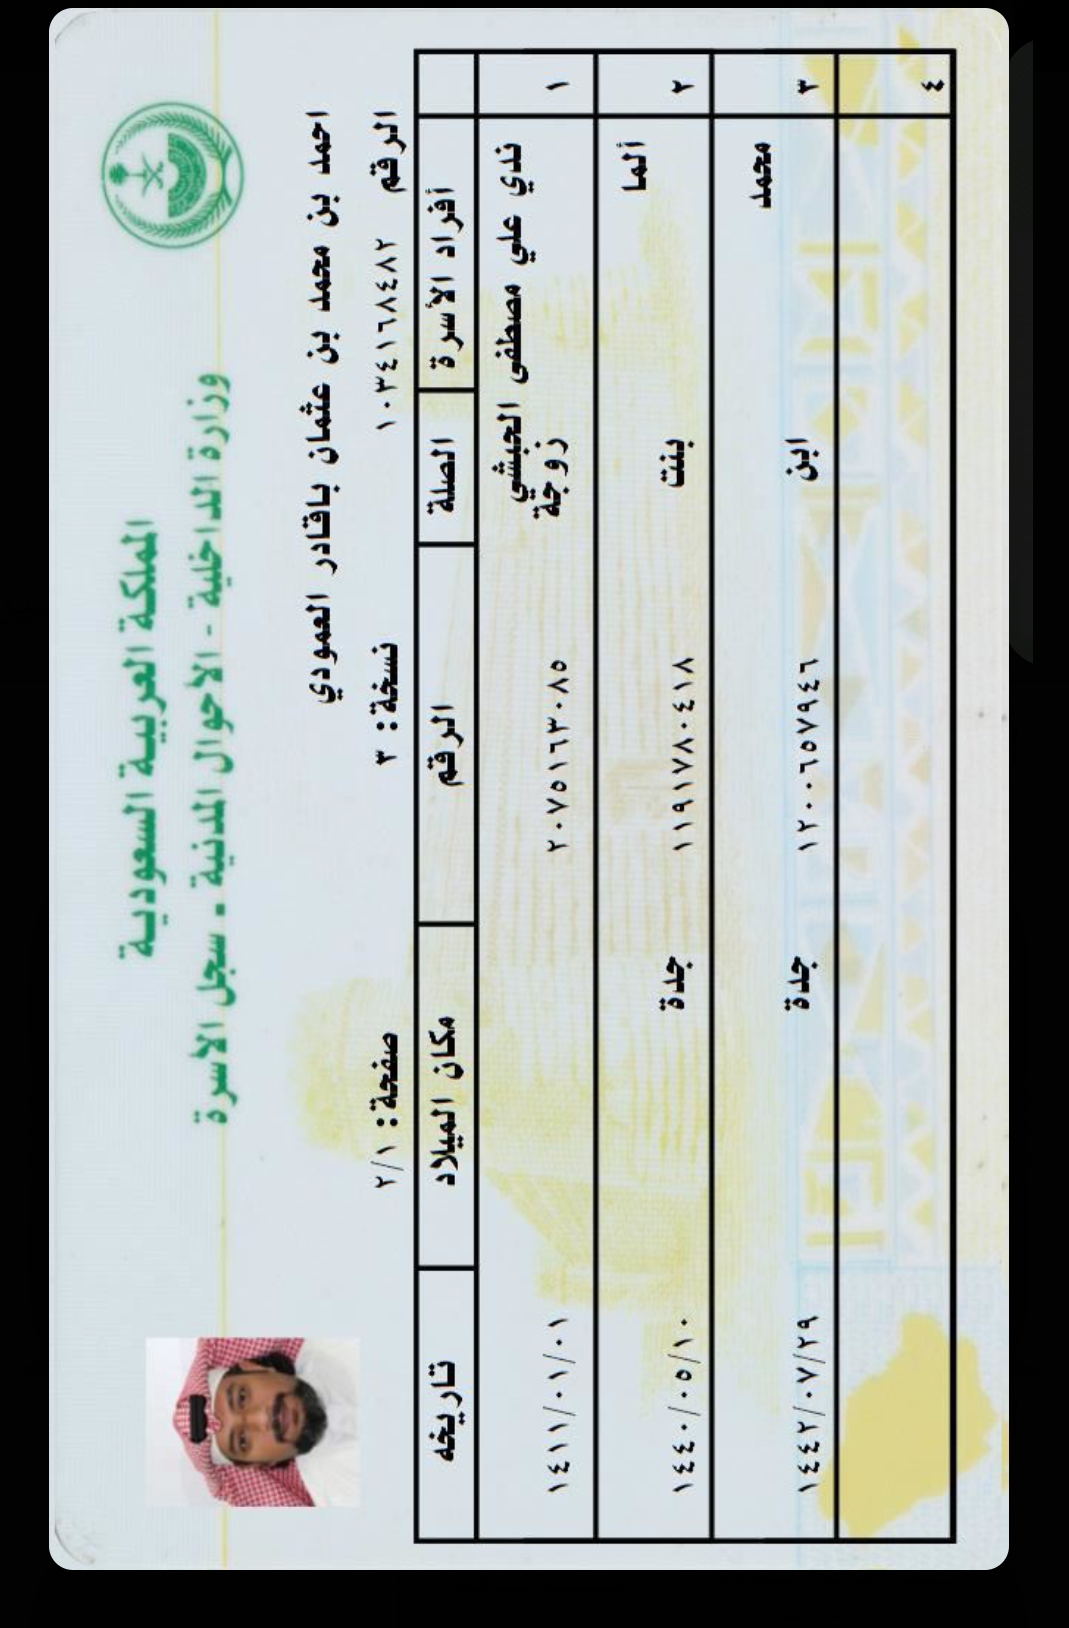 المملكة العربية السعودية
وزارة الداخلية - الاحوال المدنية - سجل الأسرة
احمد بن محمد بن عثمان باقادر العمودي
الرقم ١٠٣٤١٦٨٤٨٢ نسخة: ٣ صفحة: ٢/١
أفراد الأسرة الصلة الرقم مكان الميلاد تاريخه
١ ندي علي مصطفى الحبشي زوجة ٢٠٧٥١٦٣٠٨٥ ١٤١١/٠١/٠١
٢ ألما بنت ١١٩١٧٨٠٤١٨ جدة ١٤٤٠/٠٥/١٠
٣ محمد ابن ١٢٠٠٦٥٧٩٤٦ جدة ١٤٤٢/٠٧/٢٩
٤